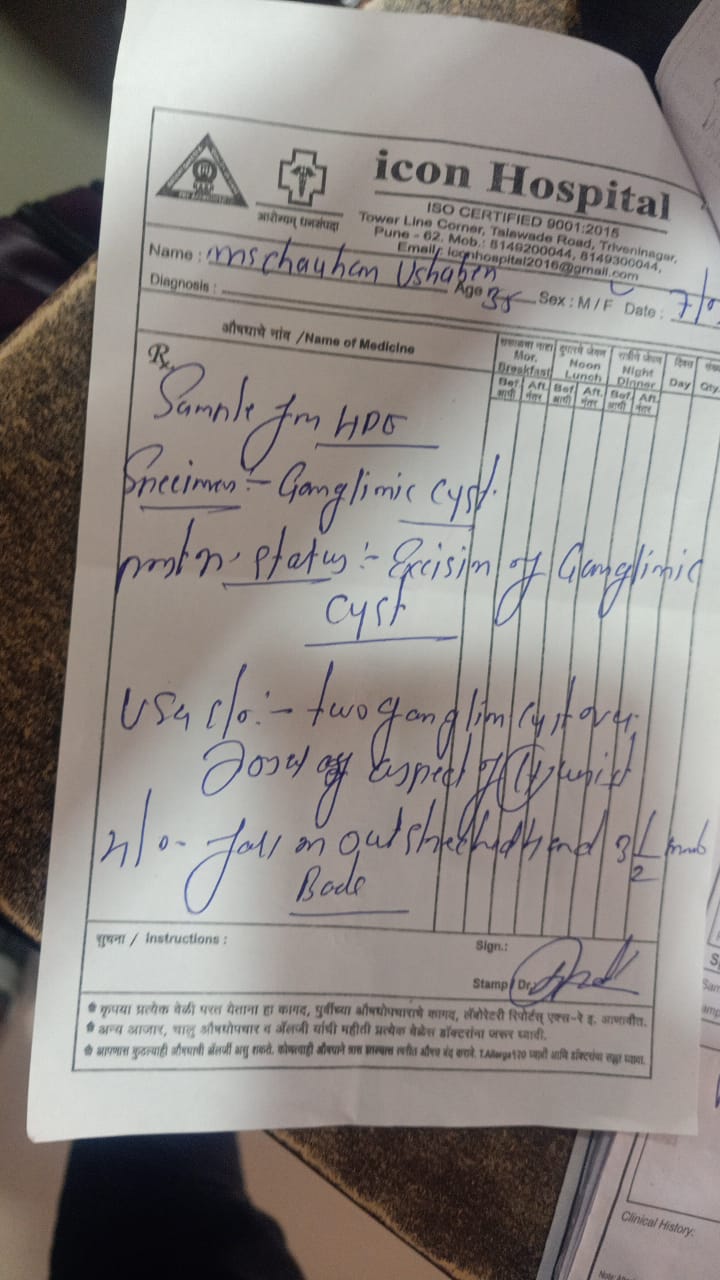 icon Hospital
आरोग्यम् धनसंपदा
ISO CERTIFIED 9001:2015
Tower Line Corner, Talawade Road, Triveninagar,
Pune - 62. Mob.: 8149200044, 8149300044,
Email: iconhospital2016@gmail.com
Name : Ms Chauhan Ushaben Age 35 Sex : M / F Date : 7/0
Diagnosis :
Rx
औषधाचे नांव / Name of Medicine
Mor. Breakfast
दुपारचे जेवण Noon Lunch
रात्रीचे जेवण Night Dinner
दिवस Day
Qty.
Bef. Aft. Bef. Aft. Bef. Aft.
आधी नंतर आधी नंतर आधी नंतर
Sample for HPE
Specimen :- Ganglionic Cyst.
status :- Excision of Ganglionic
Cyst
USG c/o :- two ganglion cyst over
aspect of (Lt) wrist
h/o - fall on outstretched hand 3 1/2
Back
सुचना / Instructions :
Sign.:
Stamp / Dr.
कृपया प्रत्येक वेळी परत येताना हा कागद, पुर्वीच्या औषधोपचाराचे कागद, लॅबोरेटरी रिपोर्टस् एक्स-रे इ. आणावीत.
अन्य आजार, चालु औषधोपचार व ॲलर्जी यांची महीती प्रत्येक वेळेस डॉक्टरांना जरूर द्यावी.
आपणास कुठल्याही औषधाची ॲलर्जी असु शकते. कोणत्याही औषधाने त्रास झाल्यास त्वरीत औषध बंद करावे.
Clinical History: